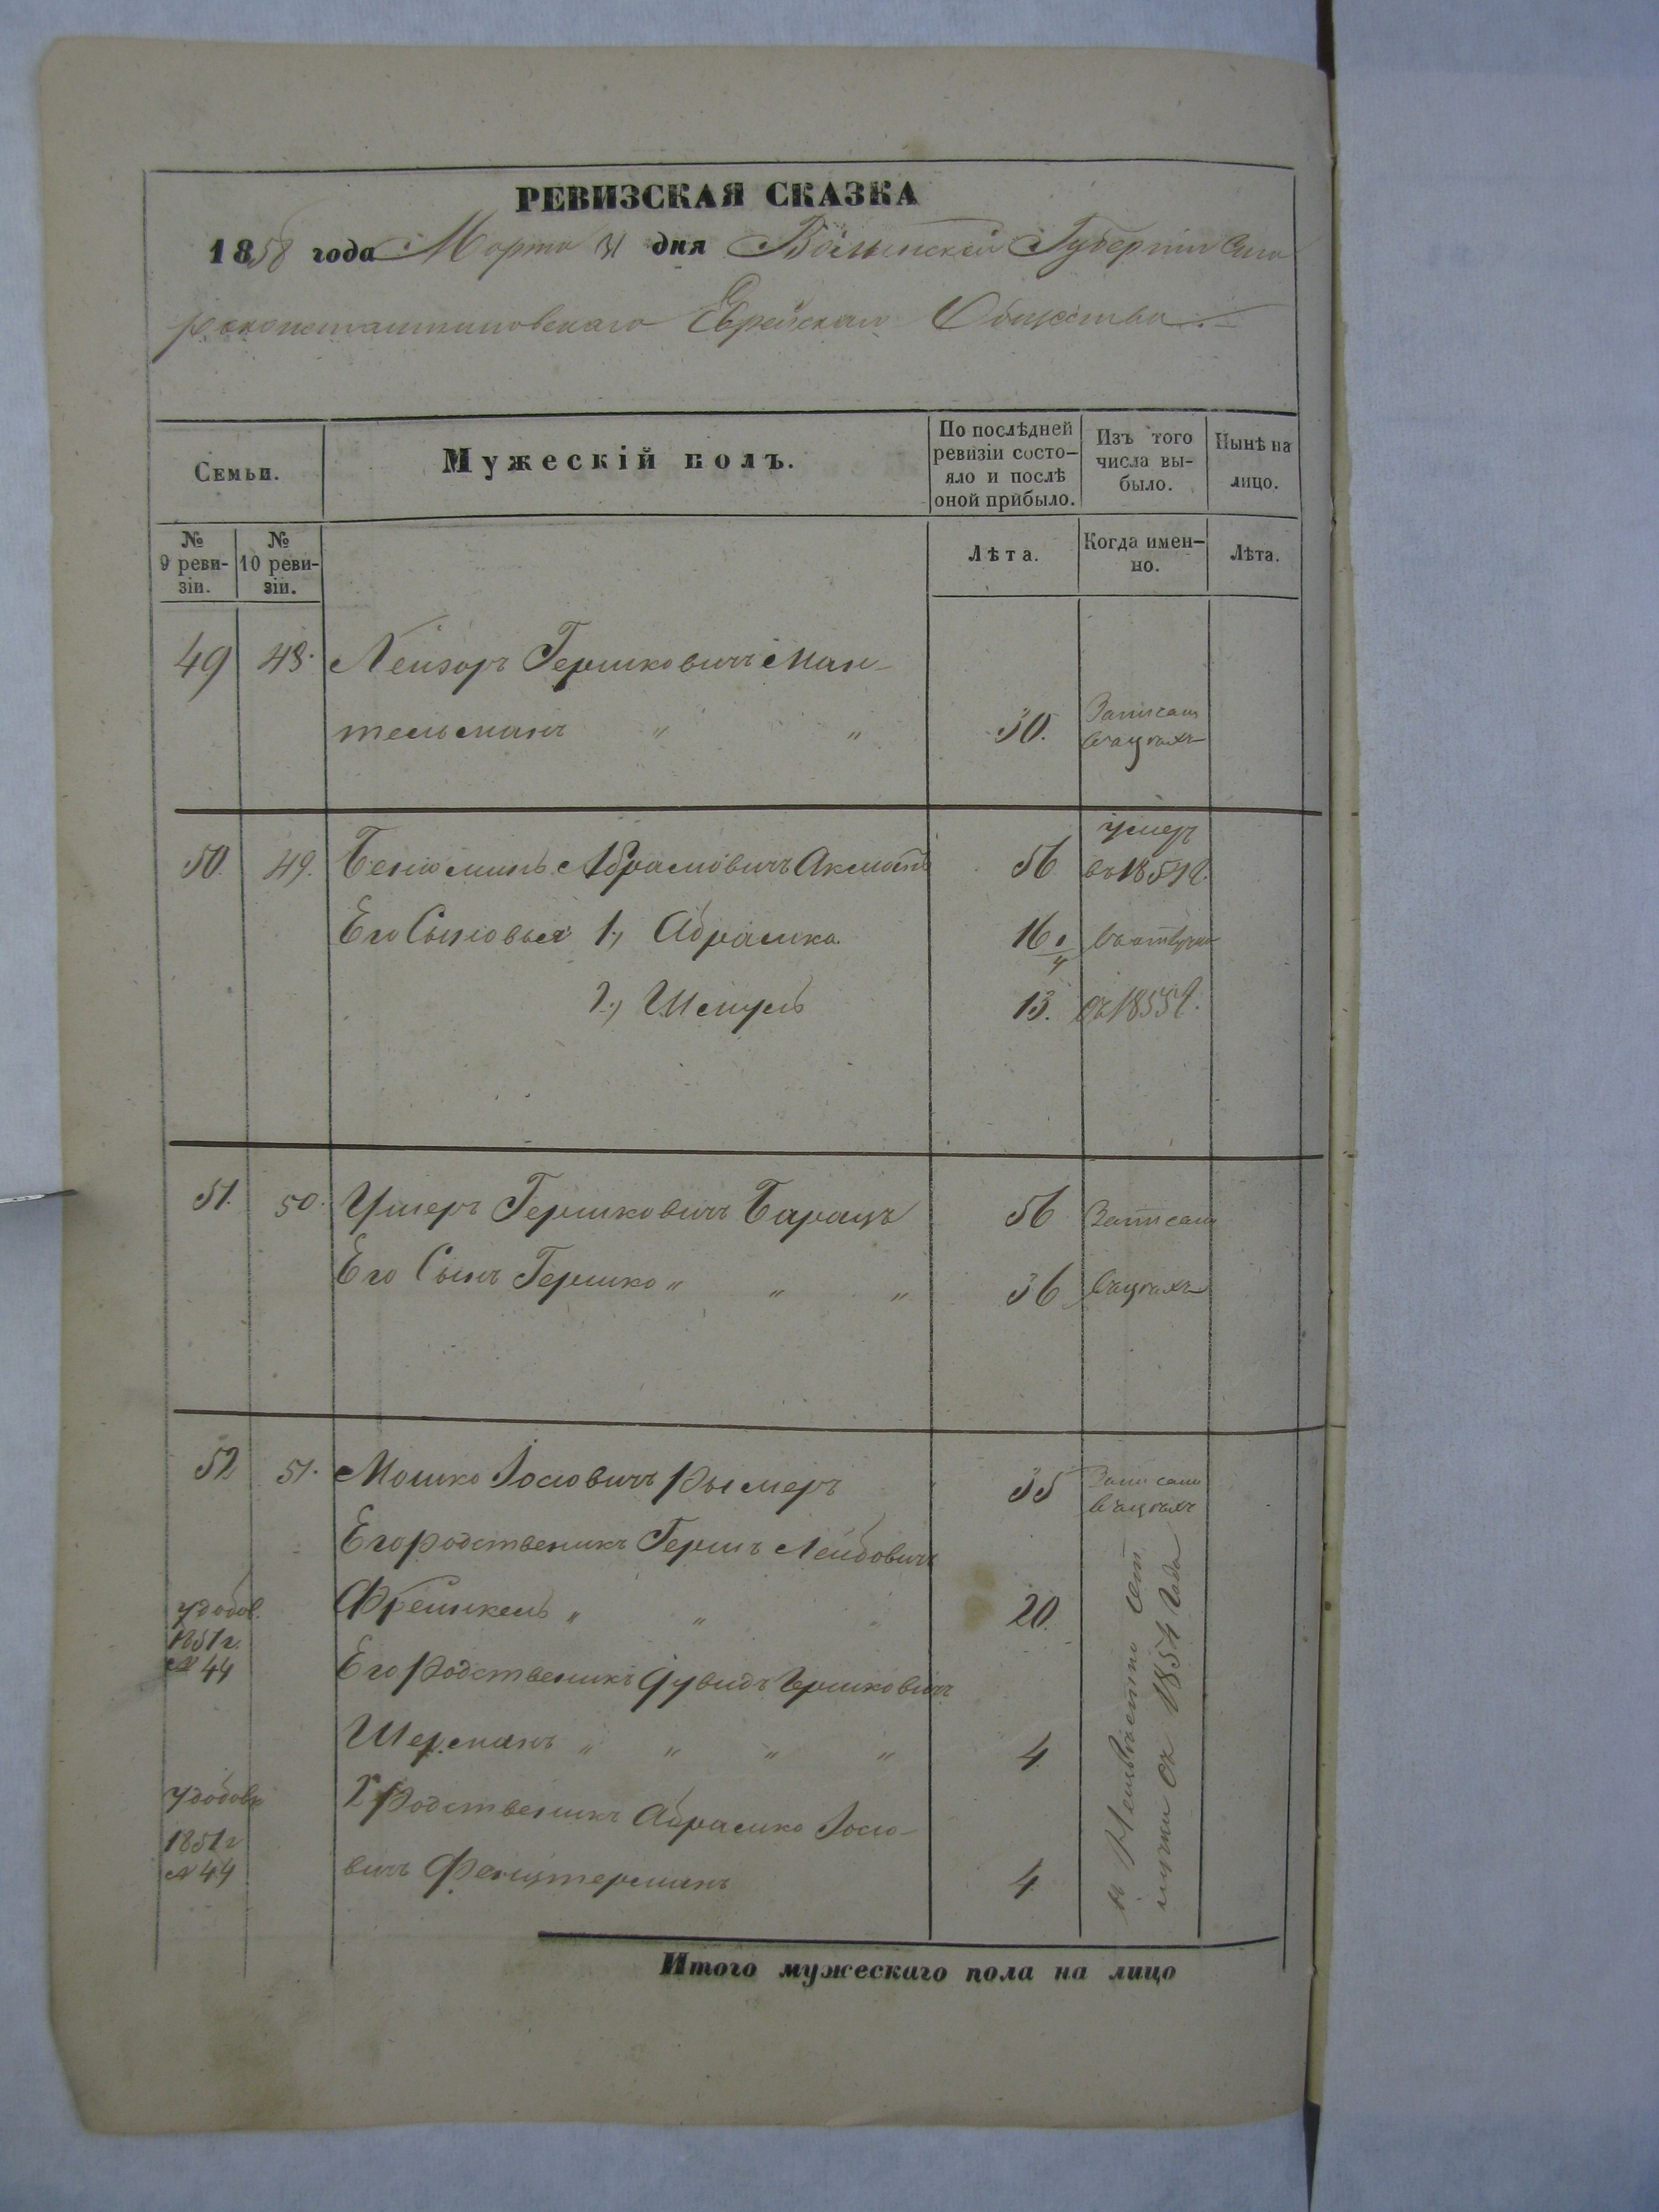 РЕВИЗСКАЯ СКАЗКА
1858 года Марта 31 дня Волынской Губернiи Ста
роконстантиновскаго Еврейскаго Общества
Семьи.
Мужескiй полъ.
По послѣдней ревизiи состо-
яло и послѣ оной прибыло.
Изъ того числа вы-
было.
Нынѣ на лицо.
№ 9 реви-
зiи.
№ 10 реви-
зiи.
Лѣта.
Когда имен-
но.
Лѣта.
49 48. Лейзоръ Гершковичъ Ман-
тельманъ " " 30. Записаны
въ цехахъ
50. 49. Бенюминъ Абрамовичъ 56 умеръ
въ 1854 г.
Его Сыновья 1, Абрамко 16
2, Шмуль 13. 1855 г.
51. 50. Ушеръ Гершковичъ Барацъ 56 Записаны
Его Сынъ Гершко " " " 36
52 51. Мошко Іосіовичъ Рымеръ 35 Записаны
Его родственикъ Гершъ Лейбовичъ
Френкель " " 20.
удобов.
1851 г.
№ 44
Его Родственикъ Дувидъ Гершковичъ
Шерманъ " " " " 4.
2й Родственикъ Абрамко Іосіо-
вичъ Фенстерманъ 4.
1851 г
№ 44
1854 Года
Итого мужескаго пола на лицо